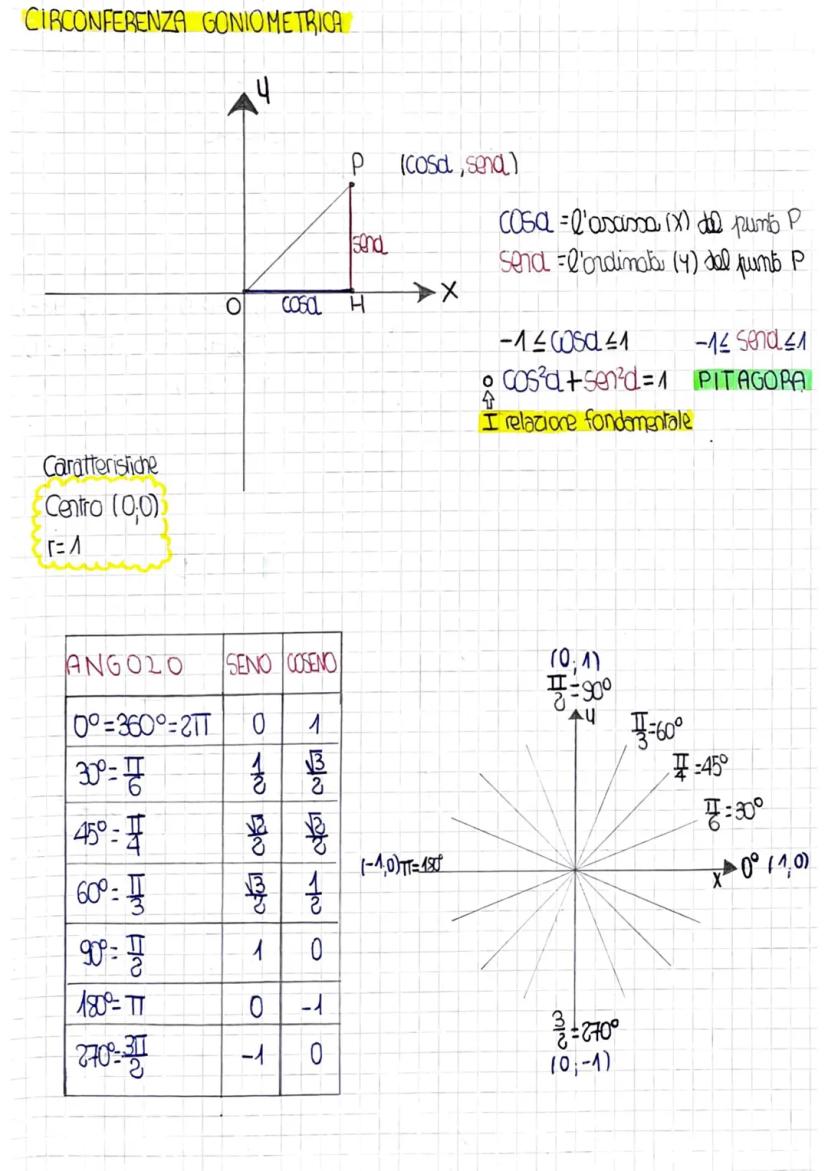 CIRCONFERENZA GONIOMETRICA
y
P (cosα, senα)
senα
O cosα H x
cosα = l'ascissa (x) del punto P
senα = l'ordinata (y) del punto P
-1 ≤ cosα ≤ 1 -1 ≤ senα ≤ 1
cos²α + sen²α = 1 PITAGORA
I relazione fondamentale
Caratteristiche
Centro (0;0)
r = 1
ANGOLO SENO COSENO
0° = 360° = 2π 0 1
30° = π/6 1/2 √3/2
45° = π/4 √2/2 √2/2
60° = π/3 √3/2 1/2
90° = π/2 1 0
180° = π 0 -1
270° = 3π/2 -1 0
(0;1)
π/2 = 90°
y
π/3 = 60°
π/4 = 45°
π/6 = 30°
(-1,0) π = 180°
x 0° (1,0)
3/2 = 270°
(0;-1)